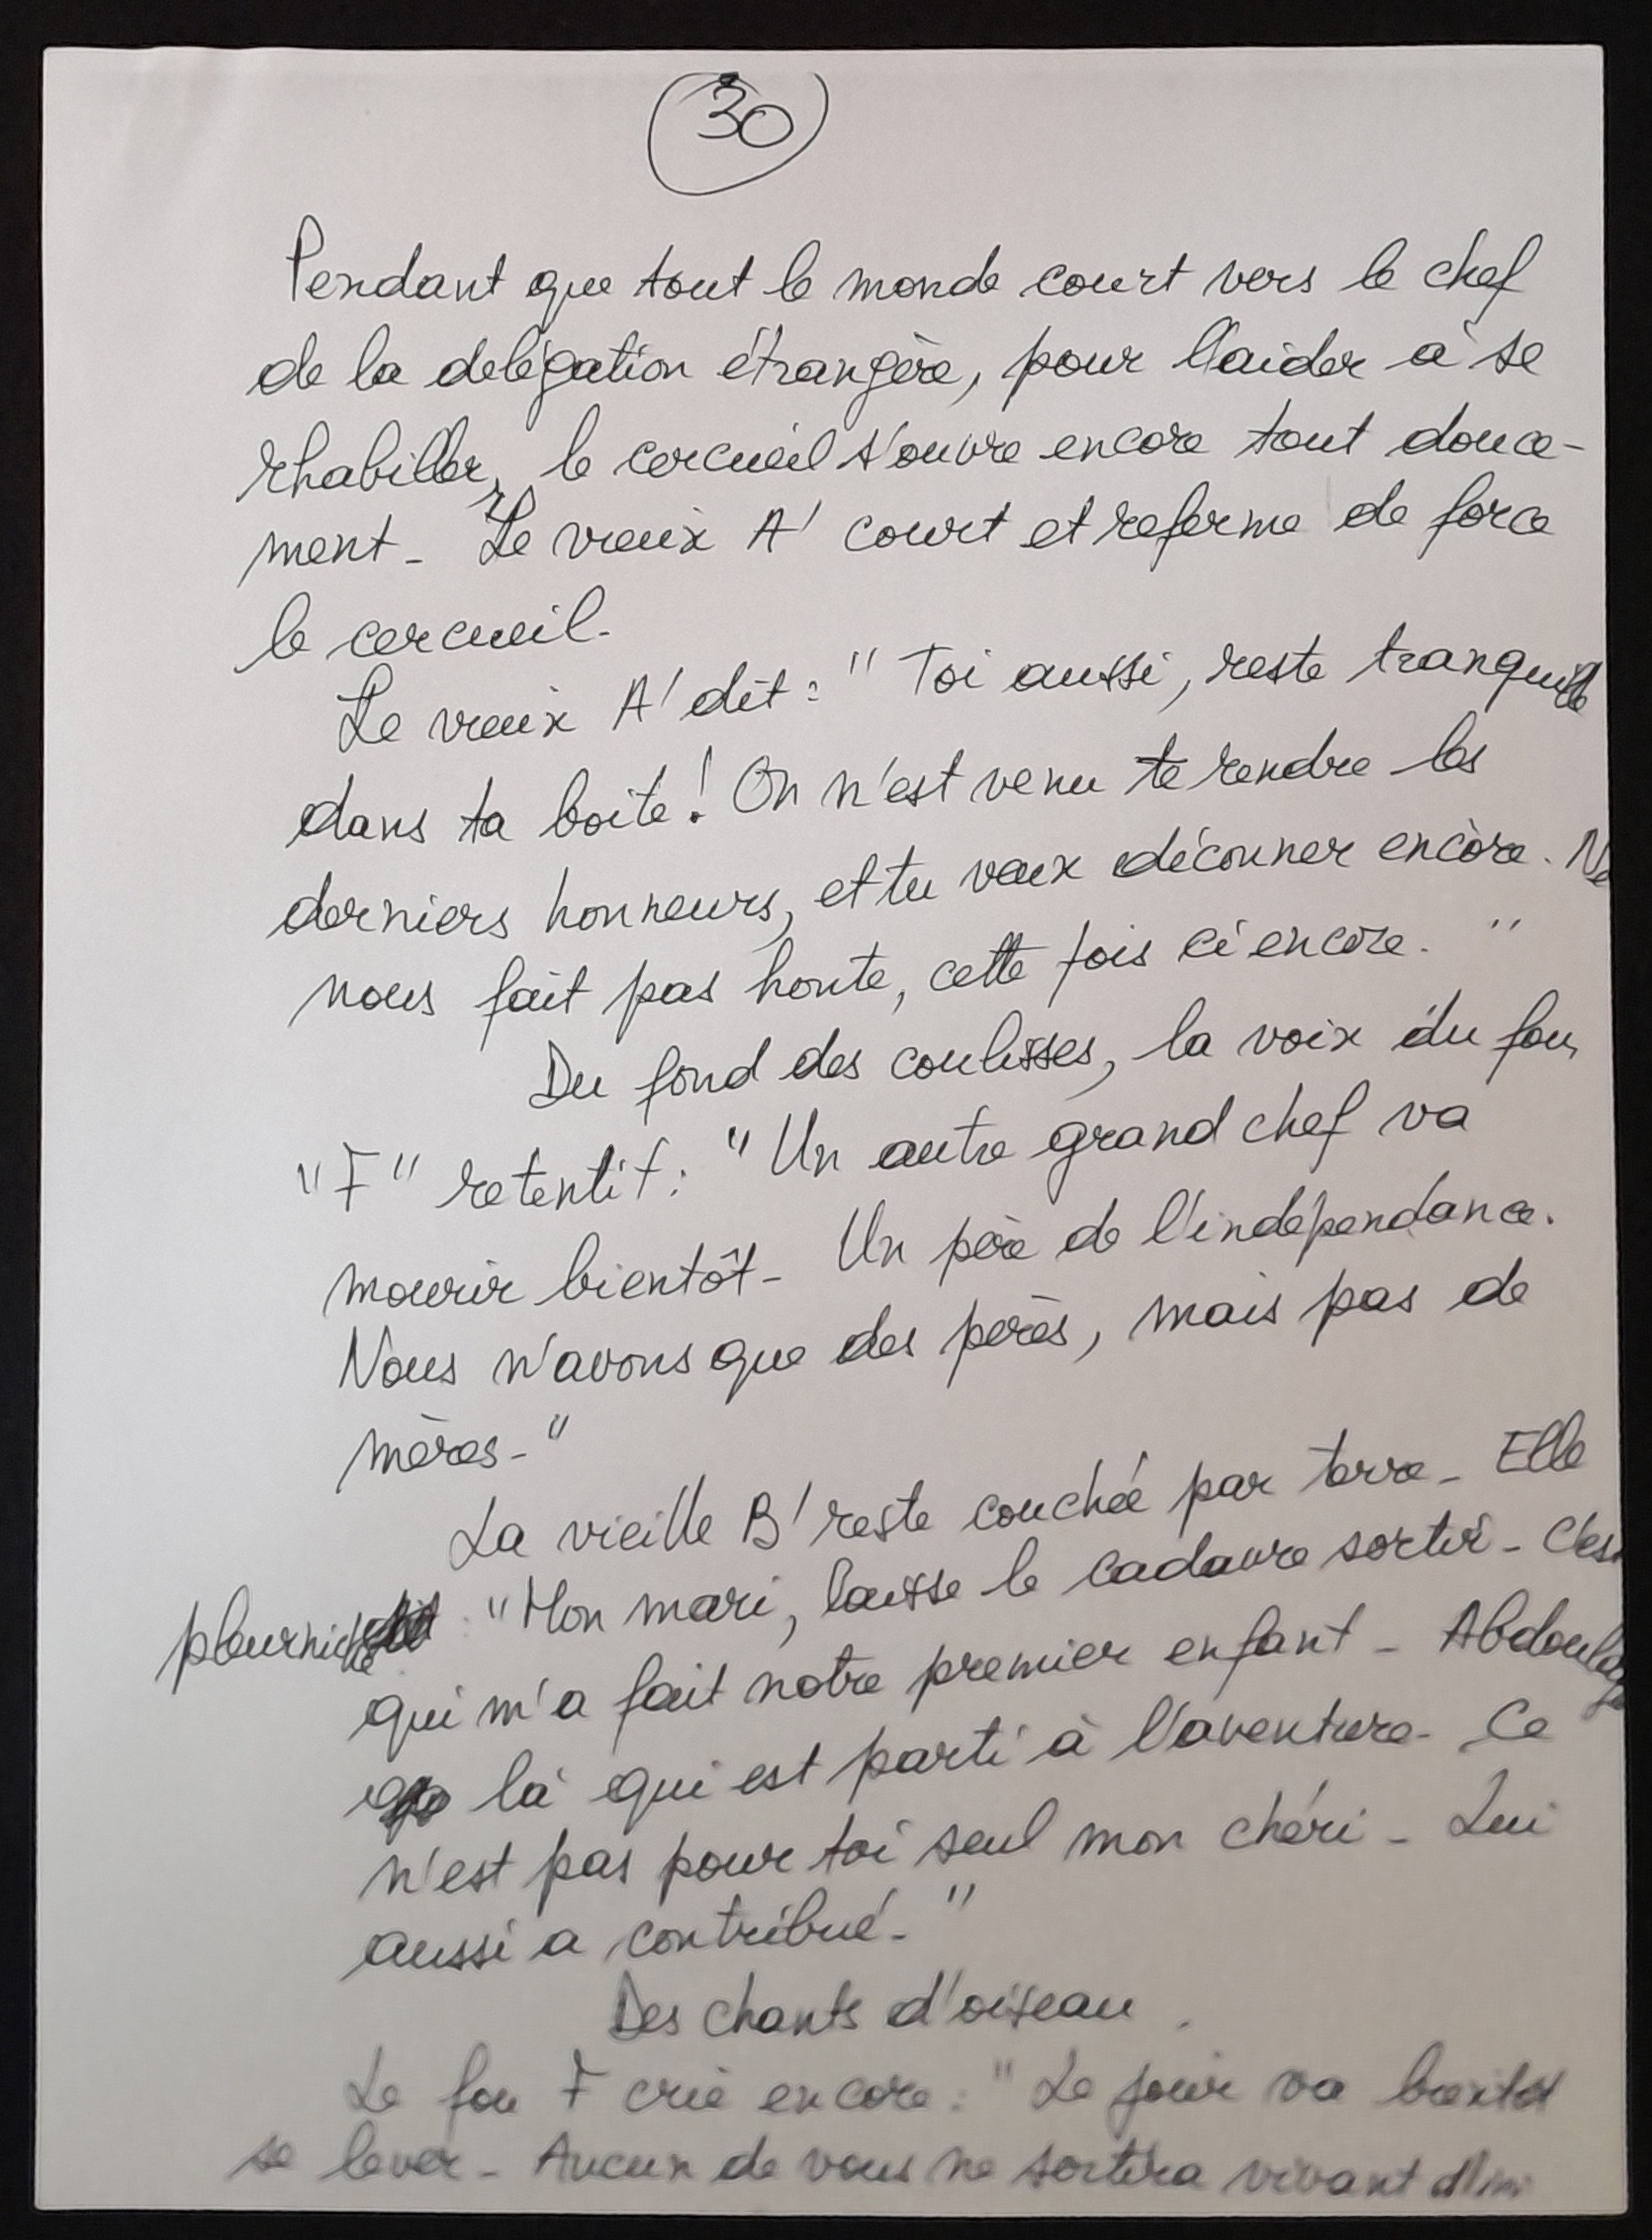 30
Pendant que tout le monde court vers le chef
de la delégation étrangère, pour l'aider à se
rhabiller, le cercueil s'ouvre encore tout douce-
ment. Le vieux A' court et referme de force
le cercueil.
Le vieux A' dit : "Toi aussi, reste tranquille
dans ta boite ! On n'est venu te rendre les
derniers honneurs, et tu veux déconner encore. Ne
nous fait pas honte, cette fois ci encore."
Du fond des coulisses, la voix du fou
"F" retentit : "Un autre grand chef va
mourir bientôt. Un père de l'indépendance.
Nous n'avons que des pères, mais pas de
mères."
La vieille B' reste couchée par terre. Elle
pleurniche : "Mon mari, laisse le cadavre sortir. C'est
qui m'a fait notre premier enfant. Abdoulaye
là qui est parti à l'aventure. Ce
n'est pas pour toi seul mon chéri. Lui
aussi a contribué."
Des chants d'oiseau.
Le fou F crie encore : "Le jour va bientôt
se lever. Aucun de vous ne sortira vivant